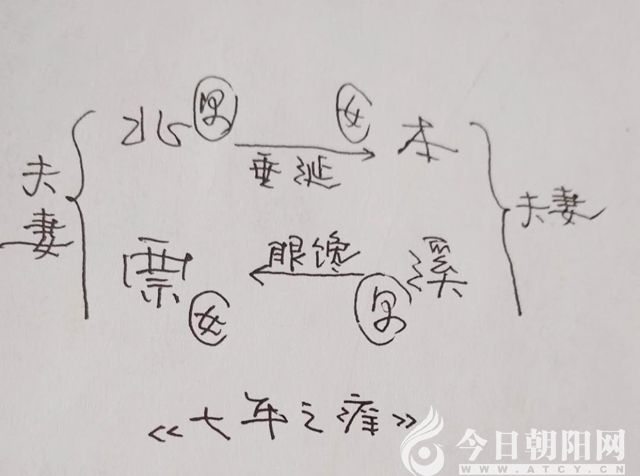 夫妻 北 男 女 本 夫妻
垂涎
票 女 眼馋 男 溪
《七年之痒》
今日朝阳网
WWW.ATCY.CN